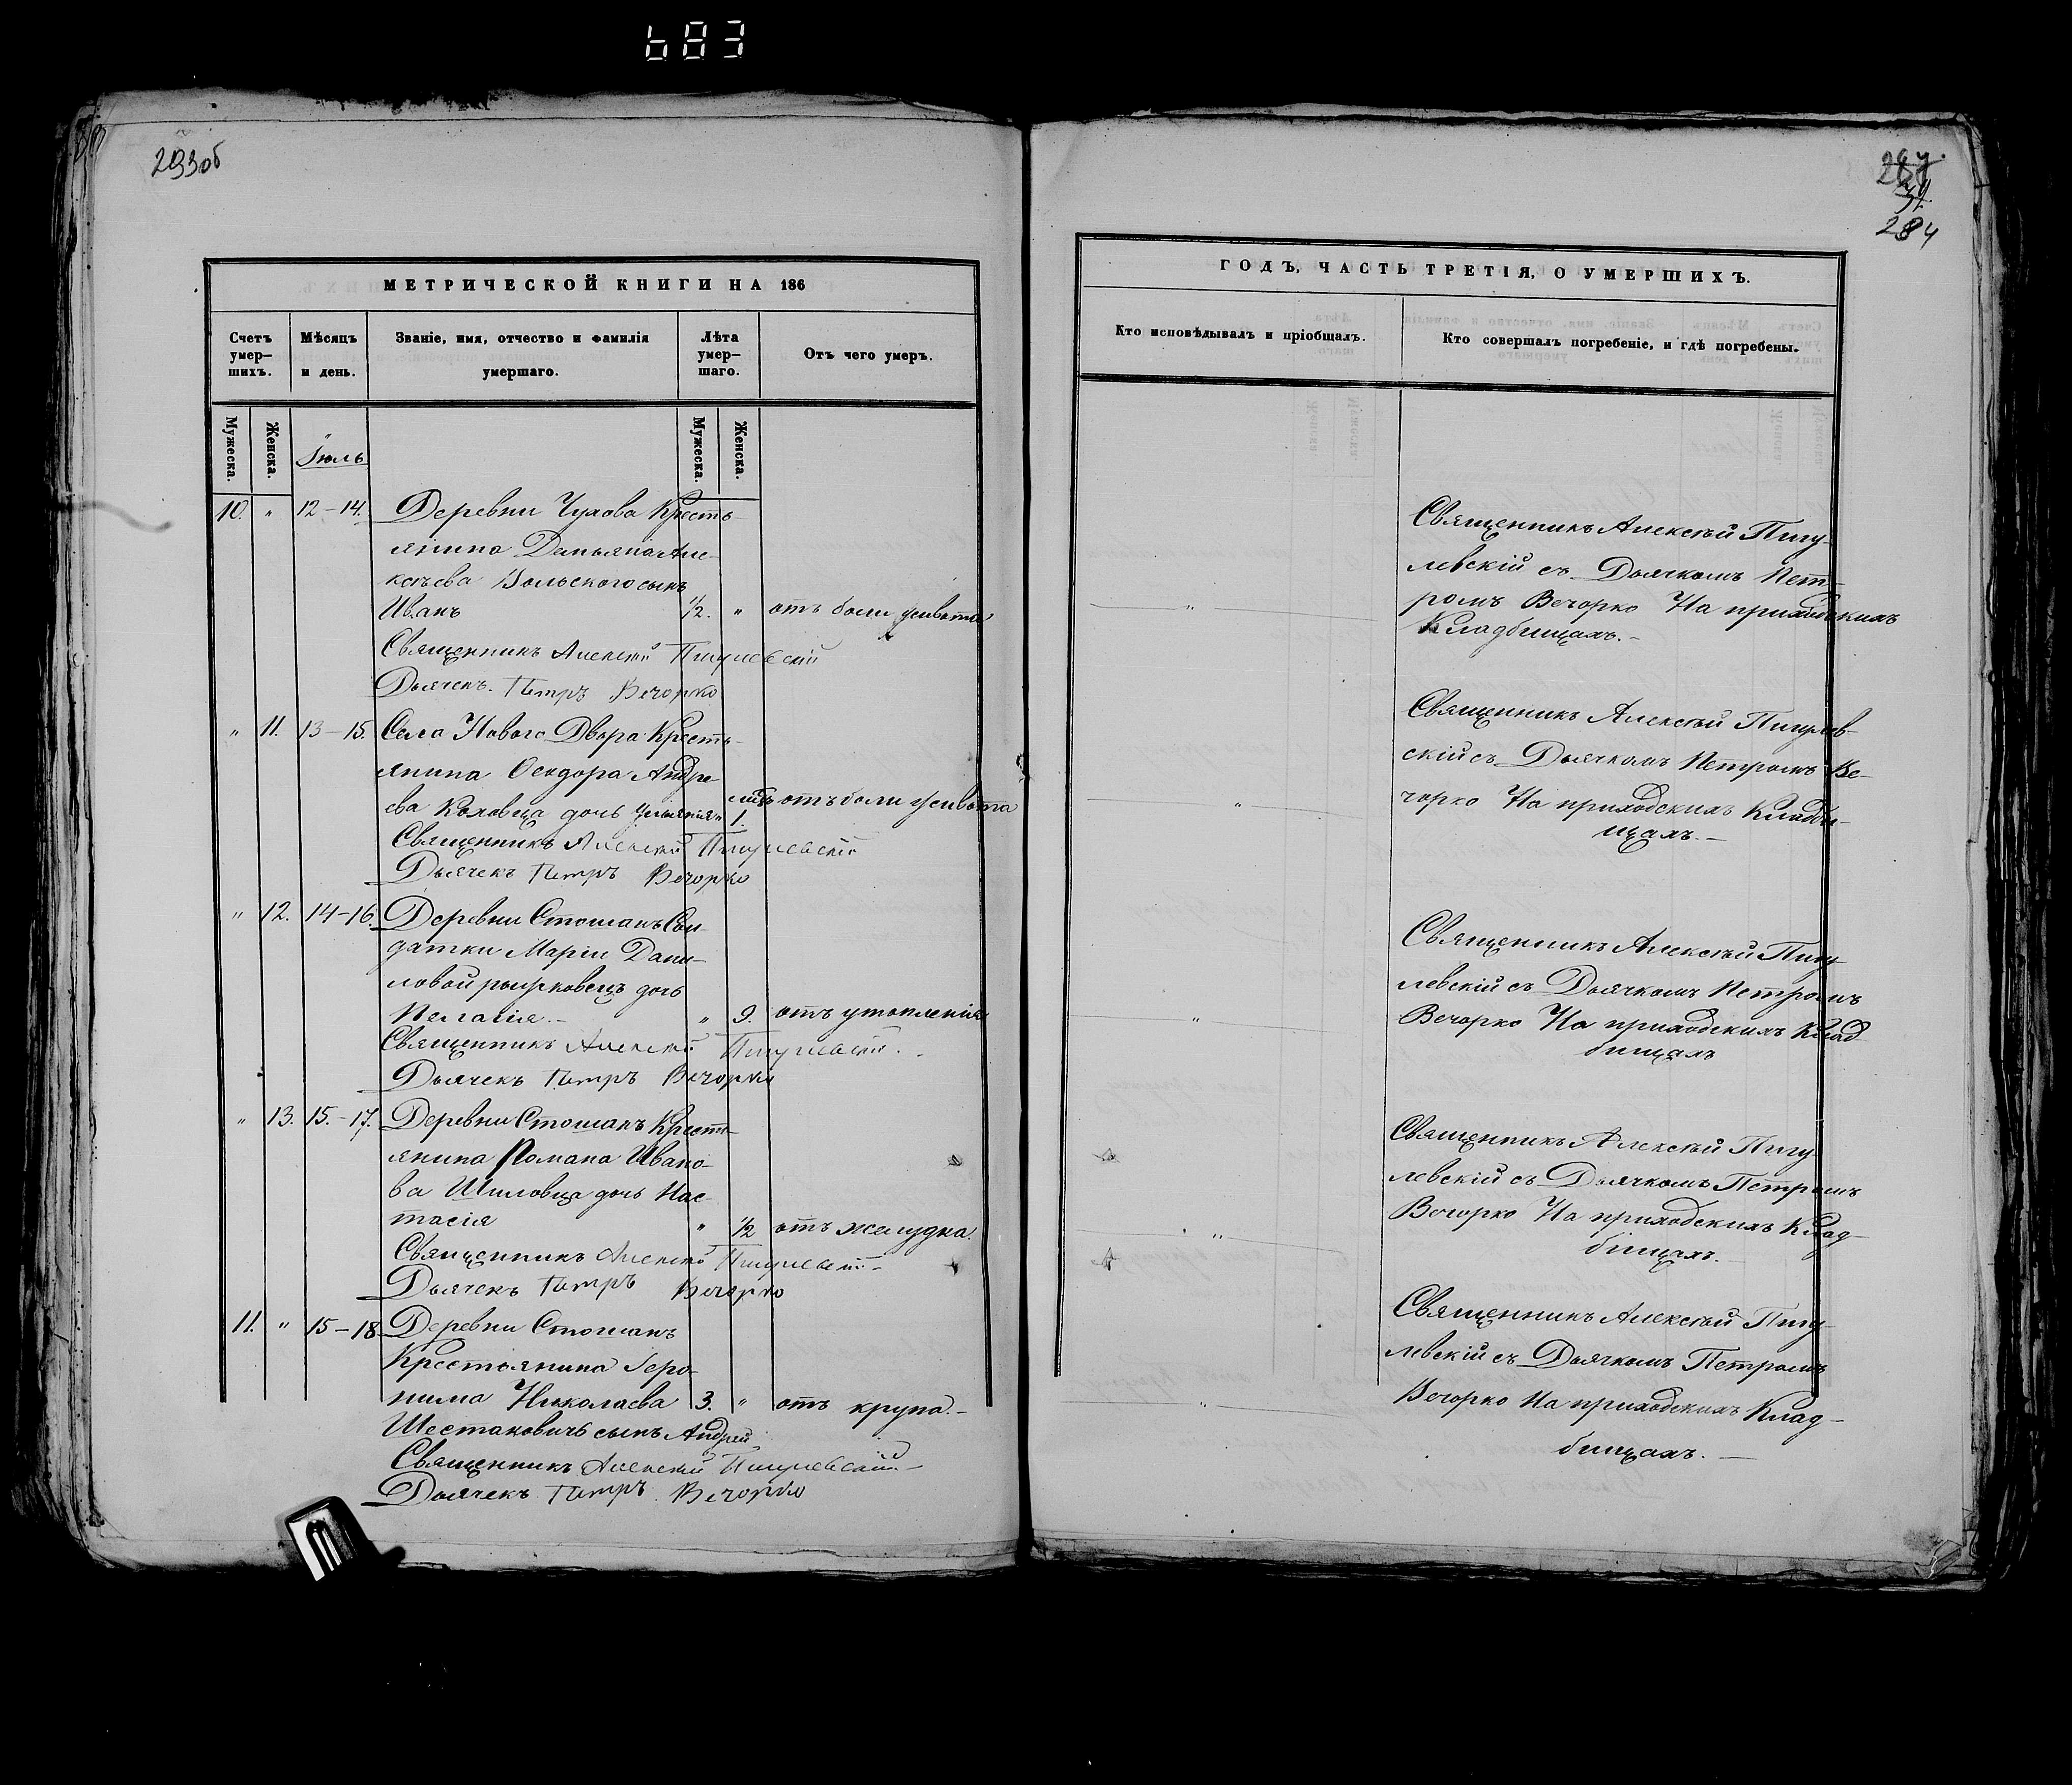 683
293об
МЕТРИЧЕСКОЙ КНИГИ НА 186
Счетъ умер-шихъ.
Мѣсяцъ и день.
Званіе, имя, отчество и фамилія умершаго.
Лѣта умер-шаго.
Отъ чего умеръ.
Мужеска.
Женска.
Іюль
Мужеска.
Женска.
10. " 12-14. Деревни Чухова Кресть-
янина Демьяна Але-
ксѣева Вольского сынъ
Иванъ 1/2. " отъ боли живота
Священникъ Алексѣй Пигулевскій
Дьячекъ Петръ Вечорко
" 11. 13-15. Села Нового Двора Кресть-
янина Ѳеодора Андре-
ева Коловца дочь " 1. отъ боли живота
Священникъ Алексѣй Пигулевскій
Дьячекъ Петръ Вечорко
" 12. 14-16. Деревни Стошанъ Сол-
датки Маріи Дани-
ловой дочь
Пелагія.- " 9. отъ утопленія
Священникъ Алексѣй Пигулевскій.
Дьячекъ Петръ Вечорко
" 13. 15.-17. Деревни Стошанъ Кресть-
янина Романа Ивано-
ва Шиловца дочь Нас-
тасія " 1/2 отъ желудка.
Священникъ Алексѣй Пигулевскій-
Дьячекъ Петръ Вечорко
11. " 15-18 Деревни Стошанъ
Крестьянина Іеро-
нима Николаева 3. " отъ крупа.-
Шестаковичъ сынъ Андрей
Священникъ Алексѣй Пигулевскій-
Дьячекъ Петръ Вечорко
284
ГОДЪ, ЧАСТЬ ТРЕТІЯ, О УМЕРШИХЪ.
Кто исповѣдывалъ и пріобщалъ.
Кто совершалъ погребеніе, и гдѣ погребены.
Священникъ Алексѣй Пигу-
левскій съ Дьячкомъ Пет-
" ромъ Вечорко На приходскихъ
Кладбищахъ.-
Священникъ Алексѣй Пигулев-
скій съ Дьячкомъ Петромъ Ве-
" чорко На приходскихъ Кладби-
щахъ.-
Священникъ Алексѣй Пигу-
левскій съ Дьячкомъ Петромъ
" Вечорко На приходскихъ Клад
бищахъ
Священникъ Алексѣй Пигу
левскій съ Дьячкомъ Петромъ
" Вечорко На приходскихъ Клад-
бищахъ.
Священникъ Алексѣй Пигу-
левскій съ Дьячкомъ Петромъ
" Вечорко На приходскихъ Клад-
бищахъ.-